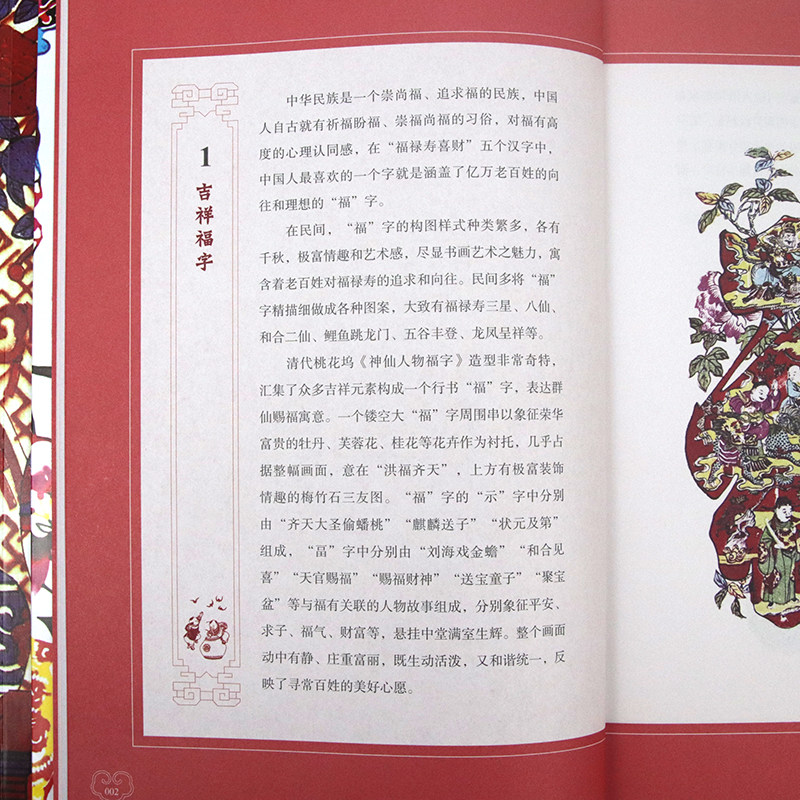 1
吉祥福字
中华民族是一个崇尚福、追求福的民族，中国
人自古就有祈福盼福、崇福尚福的习俗，对福有高
度的心理认同感，在“福禄寿喜财”五个汉字中，
中国人最喜欢的一个字就是涵盖了亿万老百姓的向
往和理想的“福”字。
在民间，“福”字的构图样式种类繁多，各有
千秋，极富情趣和艺术感，尽显书画艺术之魅力，寓
含着老百姓对福禄寿的追求和向往。民间多将“福”
字精描细做成各种图案，大致有福禄寿三星、八仙、
和合二仙、鲤鱼跳龙门、五谷丰登、龙凤呈祥等。
清代桃花坞《神仙人物福字》造型非常奇特，
汇集了众多吉祥元素构成一个行书“福”字，表达群
仙赐福寓意。一个镂空大“福”字周围串以象征荣华
富贵的牡丹、芙蓉花、桂花等花卉作为衬托，几乎占
据整幅画面，意在“洪福齐天”，上方有极富装饰
情趣的梅竹石三友图。“福”字的“示”字中分别
由“齐天大圣偷蟠桃”“麒麟送子”“状元及第”
组成，“畐”字中分别由“刘海戏金蟾”“和合见
喜”“天官赐福”“赐福财神”“送宝童子”“聚宝
盆”等与福有关联的人物故事组成，分别象征平安、
求子、福气、财富等，悬挂中堂满室生辉。整个画面
动中有静、庄重富丽，既生动活泼，又和谐统一，反
映了寻常百姓的美好心愿。
002